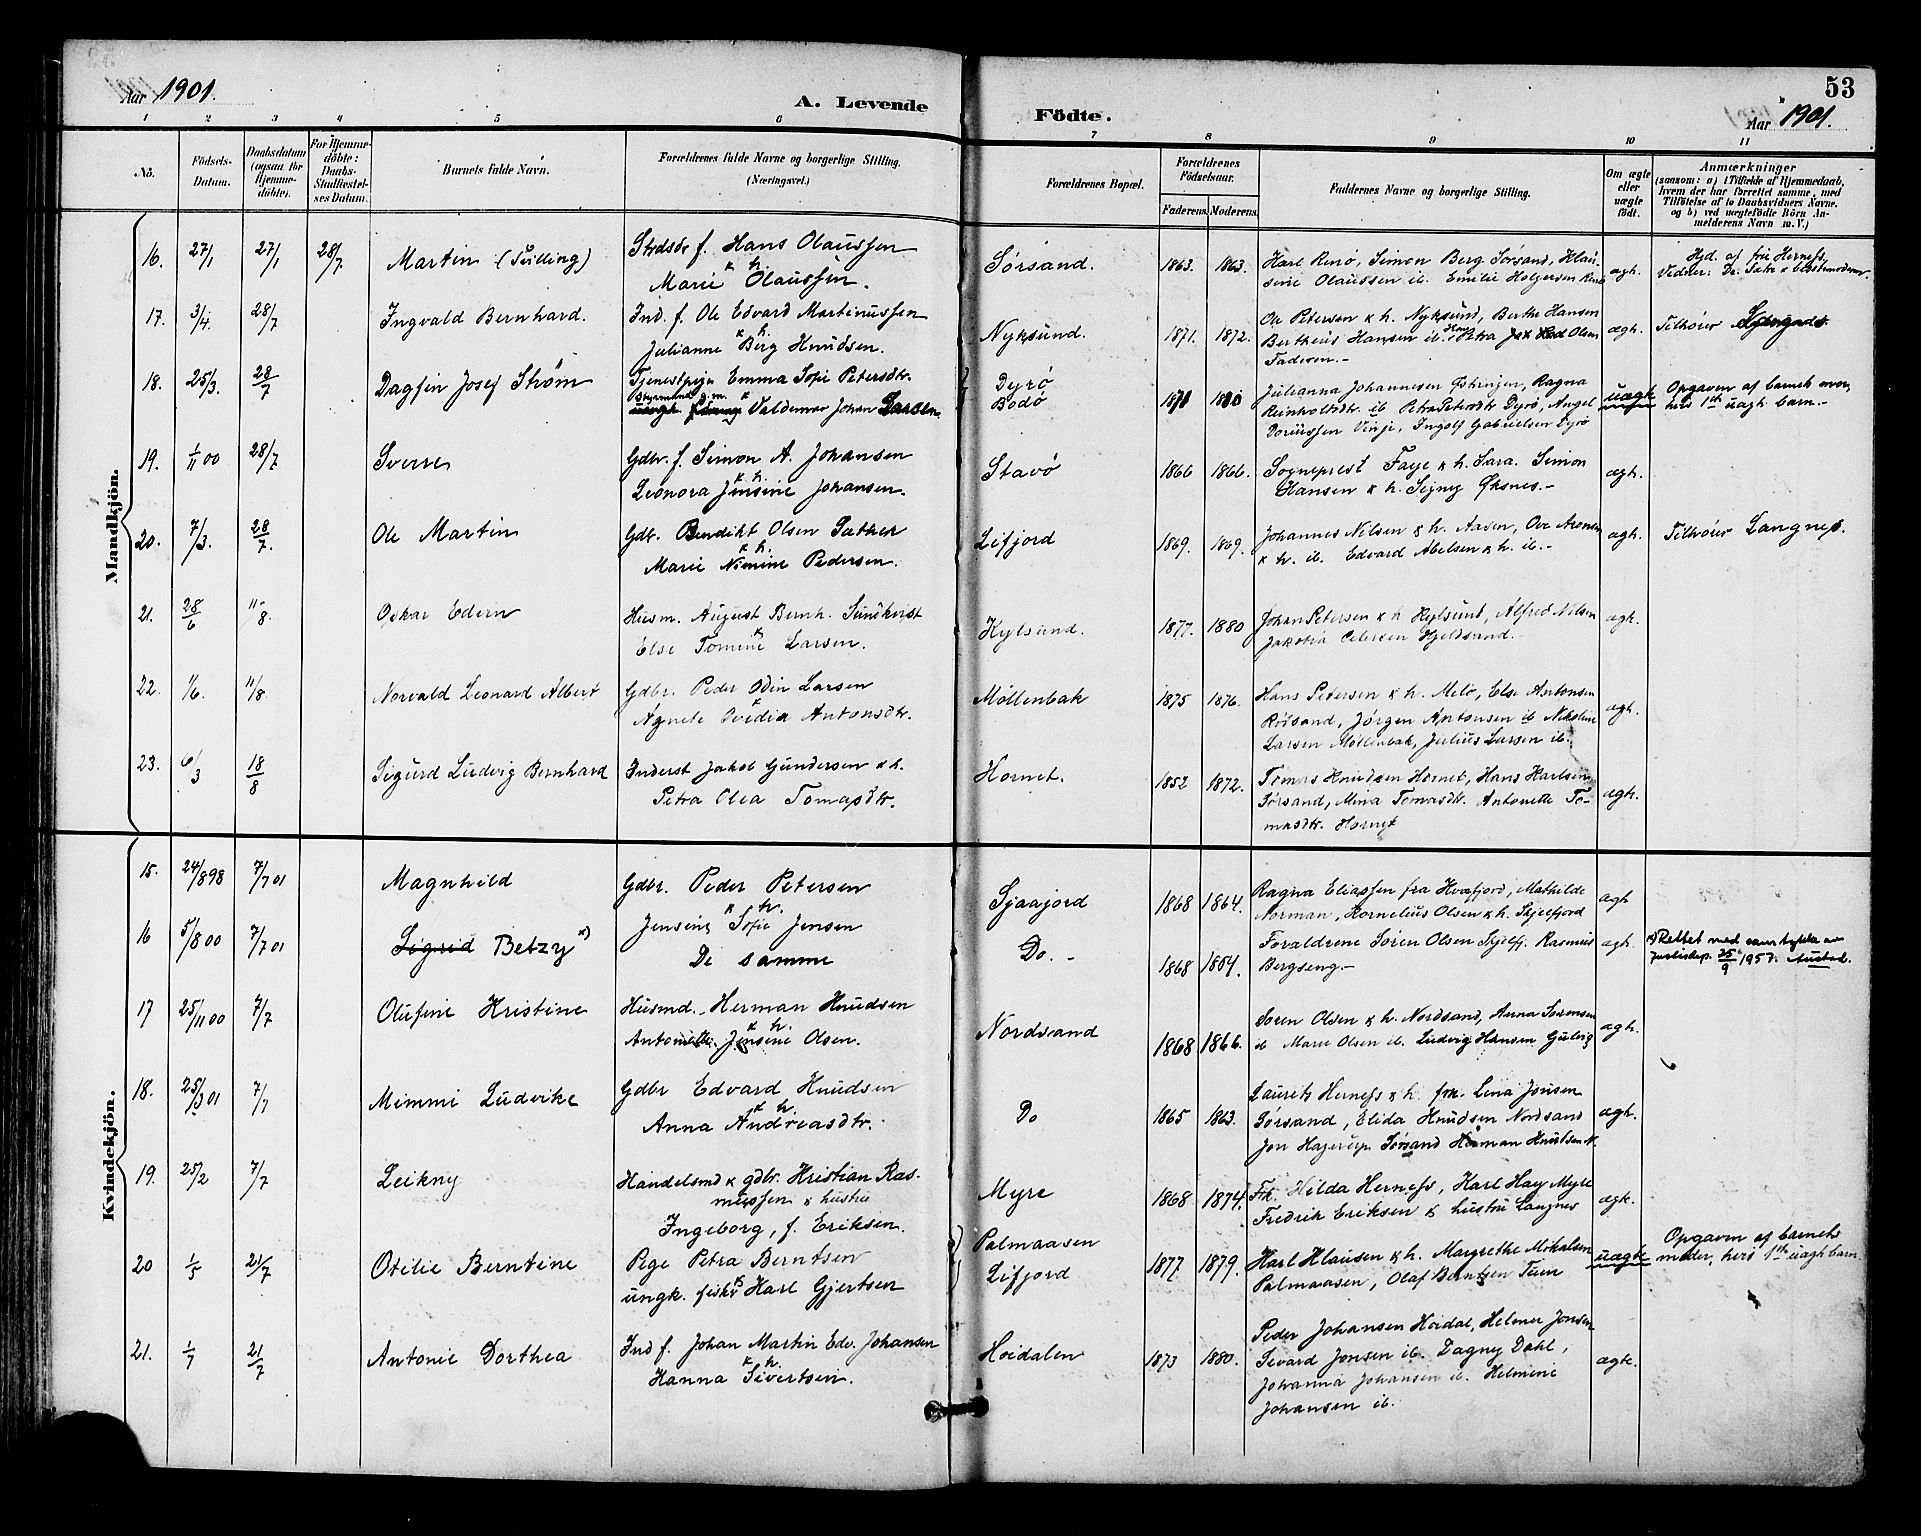 53
Aar 1901.
A. Levende
Födte.
Aar 1901.
1 2 3 4 5 6 7 8 9 10 11
No.
Födsels-
Datum.
Daabsdatum
(ogsaa for
Hjemme-
döbte).
For Hjemme-
döbte:
Daabs-
Stadfæstel-
ses Datum.
Barnets fulde Navn.
Forældrenes fulde Navne og borgerlige Stilling.
(Næringsvei.)
Forældrenes Bopæl.
Forældrenes
Födselsaar.
Faderens. Moderens.
Faddernes Navne og borgerlige Stilling.
Om ægte
eller
uægte
födt.
Anmærkninger
(saasom: a) i Tilfælde af Hjemmedaab,
hvem der har forrettet samme, med
Tilföielse af to Daabsvidners Navne,
og b) ved uægtefödte Börn An-
melderens Navn m. V.)
Mandkjön.
16. 27/1 27/1 28/7 Martin (Tvilling)
Strdsdr f. Hans Olaussen
& h.
Marie Olaussen.
Sørsand. 1863. 1863.
Karl Renø, Simon Berg Sørsand, Klau-
sine Olaussen ib. Emilie Holgersen Renø
ægh.
Hjd. af frk Herness,
17. 3/4. 28/7 Ingvald Bernhard.
Ind. f. Ole Edvard Martinussen
& h.
Julianne Berg Knudsen.
Nyksund. 1871. 1872.
Ole Petersen & h. Nyksund, Berthe Hansen
Bertheus Hansen ib. Petra Olsen
Faderen.-
ægh. Tilhører
18. 25/3. 28/7 Dagfin Josef Strøm
Tjenestpige Emma Sofie Petersdtr.
& Valdemar Johan
Dyrø
Bodø
Julianna Johannesen Østringen, Ragna
Reinholtsdtr. ib Petra Petersdtr Dyrø, Angel
Doriussen Vinje, Ingolf Gabrielsen Dyrø
uægte
Opgaven af barnets mor,
hvis 1ste uægh. barn.-
19. 1/11 00 28/7 Sverre
Gdbr. f. Simon A. Johansen
& h.
Leonora Jensine Johansen.
Stavø 1866 1866.
Sogneprest Faye & h. Sara. Simon
Hansen & h. Signy Øksnes.-
ægh.
20. 7/3. 28/7. Ole Martin
Gdbr. Bendikt Olsen Sæther
& h.
Marie Nimine Pedersen.
Lifjord 1869. 1869.
Johannes Nilsen & h. Aasen, Ove Aronsen
& h. ib. Edvard Abelsen & h. ib.-
ægh. Tilhører Langnes.
21. 28/6 11/8 Oskar Edern
Husm. August Bernh. Sundkvist
&
Else Tomine Larsen.
Kylsund. 1877. 1880
Johan Petersen & h Kylsund, Alfred Nilsen
Jakobia Petersen Gjeldsand.
ægh.
22. 1/6. 11/8. Norvald Leonard Albert
Gdbr. Peder Odin Larsen
&
Agnete Ovidia Antonsdtr.
Möllenbak 1875 1876.
Hans Petersen & h. Melø, Else Antonsen
Rødsand, Jørgen Antonsen ib Nikoline
Larsen Møllenbak, Julius Larsen ib.
ægh.
23. 6/3 18/8 Sigurd Ludvig Bernhard
Inderst Jakob Gundersen & h.
Petra Olea Tomasdtr.
Hornet. 1852 1872.
Tomas Knudsen Hornet, Hans Karlsen
Sørsand, Mina Tomasdtr. Antonette To-
masdtr. Hornet
ægh.
Kvindekjön.
15. 24/8 98 7/7 01 Magnhild
Gdbr. Peder Petersen
& h.
Jensine Sofie Jensen
Sjaajord 1868 1864.
Ragna Eliassen fra Kvafjord, Mathilde
Norman, Kornelius Olsen & h. Skjelfjord
ægh
16 5/8 00 7/7 01 Sigrid Betzy x)
De samme
Do.- 1868 1864.
Foraldrene Sören Olsen Skjelfj. Rasmus
Bergseng.-
ægh.
x) Rettet med samtykke av
justisdep. 25/9 1957. Austad.
17 25/11 00 7/7 Olufine Kristine
Husmd.. Herman Knudsen
& h.
Antonette Jensine Olsen.
Nordsand 1868 1866.
Soren Olsen & h. Nordsand, Anna Sørensen
ib Marie Olsen ib. Ludvig Hansen Gulvig
ægh.
18. 25/3 01 7/7 Mimmi Ludvike
Gdbr Edvard Knudsen
& h.
Anna Andreasdtr.
Do 1865 1863.
Laurits Herness & h. frk. Lina Jensen
Sørsand, Elida Knudsen Nordsand
Jon Hagerup Sørsand Herman Knutsen N.
ægh.
19. 25/2 7/7 Leikny
Handelsmd & gdbr. Kristian Ras-
mussen & hustru
Ingeborg, f. Eriksen.
Myre 1868 1874.
Frk. Hilda Herness, Karl Hay Myre
Fredrik Eriksen & hustru Langnes
ægte.
20 1/5 21/7 Otilie Berntine
Pige Petra Berntsen
ungk. fisker Karl Gjertsen
Palmaasen
Lifjord
1877. 1879.
Karl Klausen & h. Margrethe Mikalsen
Palmaasen, Olaf Berntsen Tuen
uægte
Opgaven af barnets
moder, hvis 1ste uægh barn.
21. 1/7 21/7 Antonie Dorthea
Ind f. Johan Martin Edv. Johansen
& h.
Hanna Sivertsen.
Høidalen 1873 1880.
Peder Johansen Høidal, Helmer Jensen
Sivard Jensen ib. Dagny Dahl,
Johanna Johansen ib. Helmine
Johansen ib.
ægte.